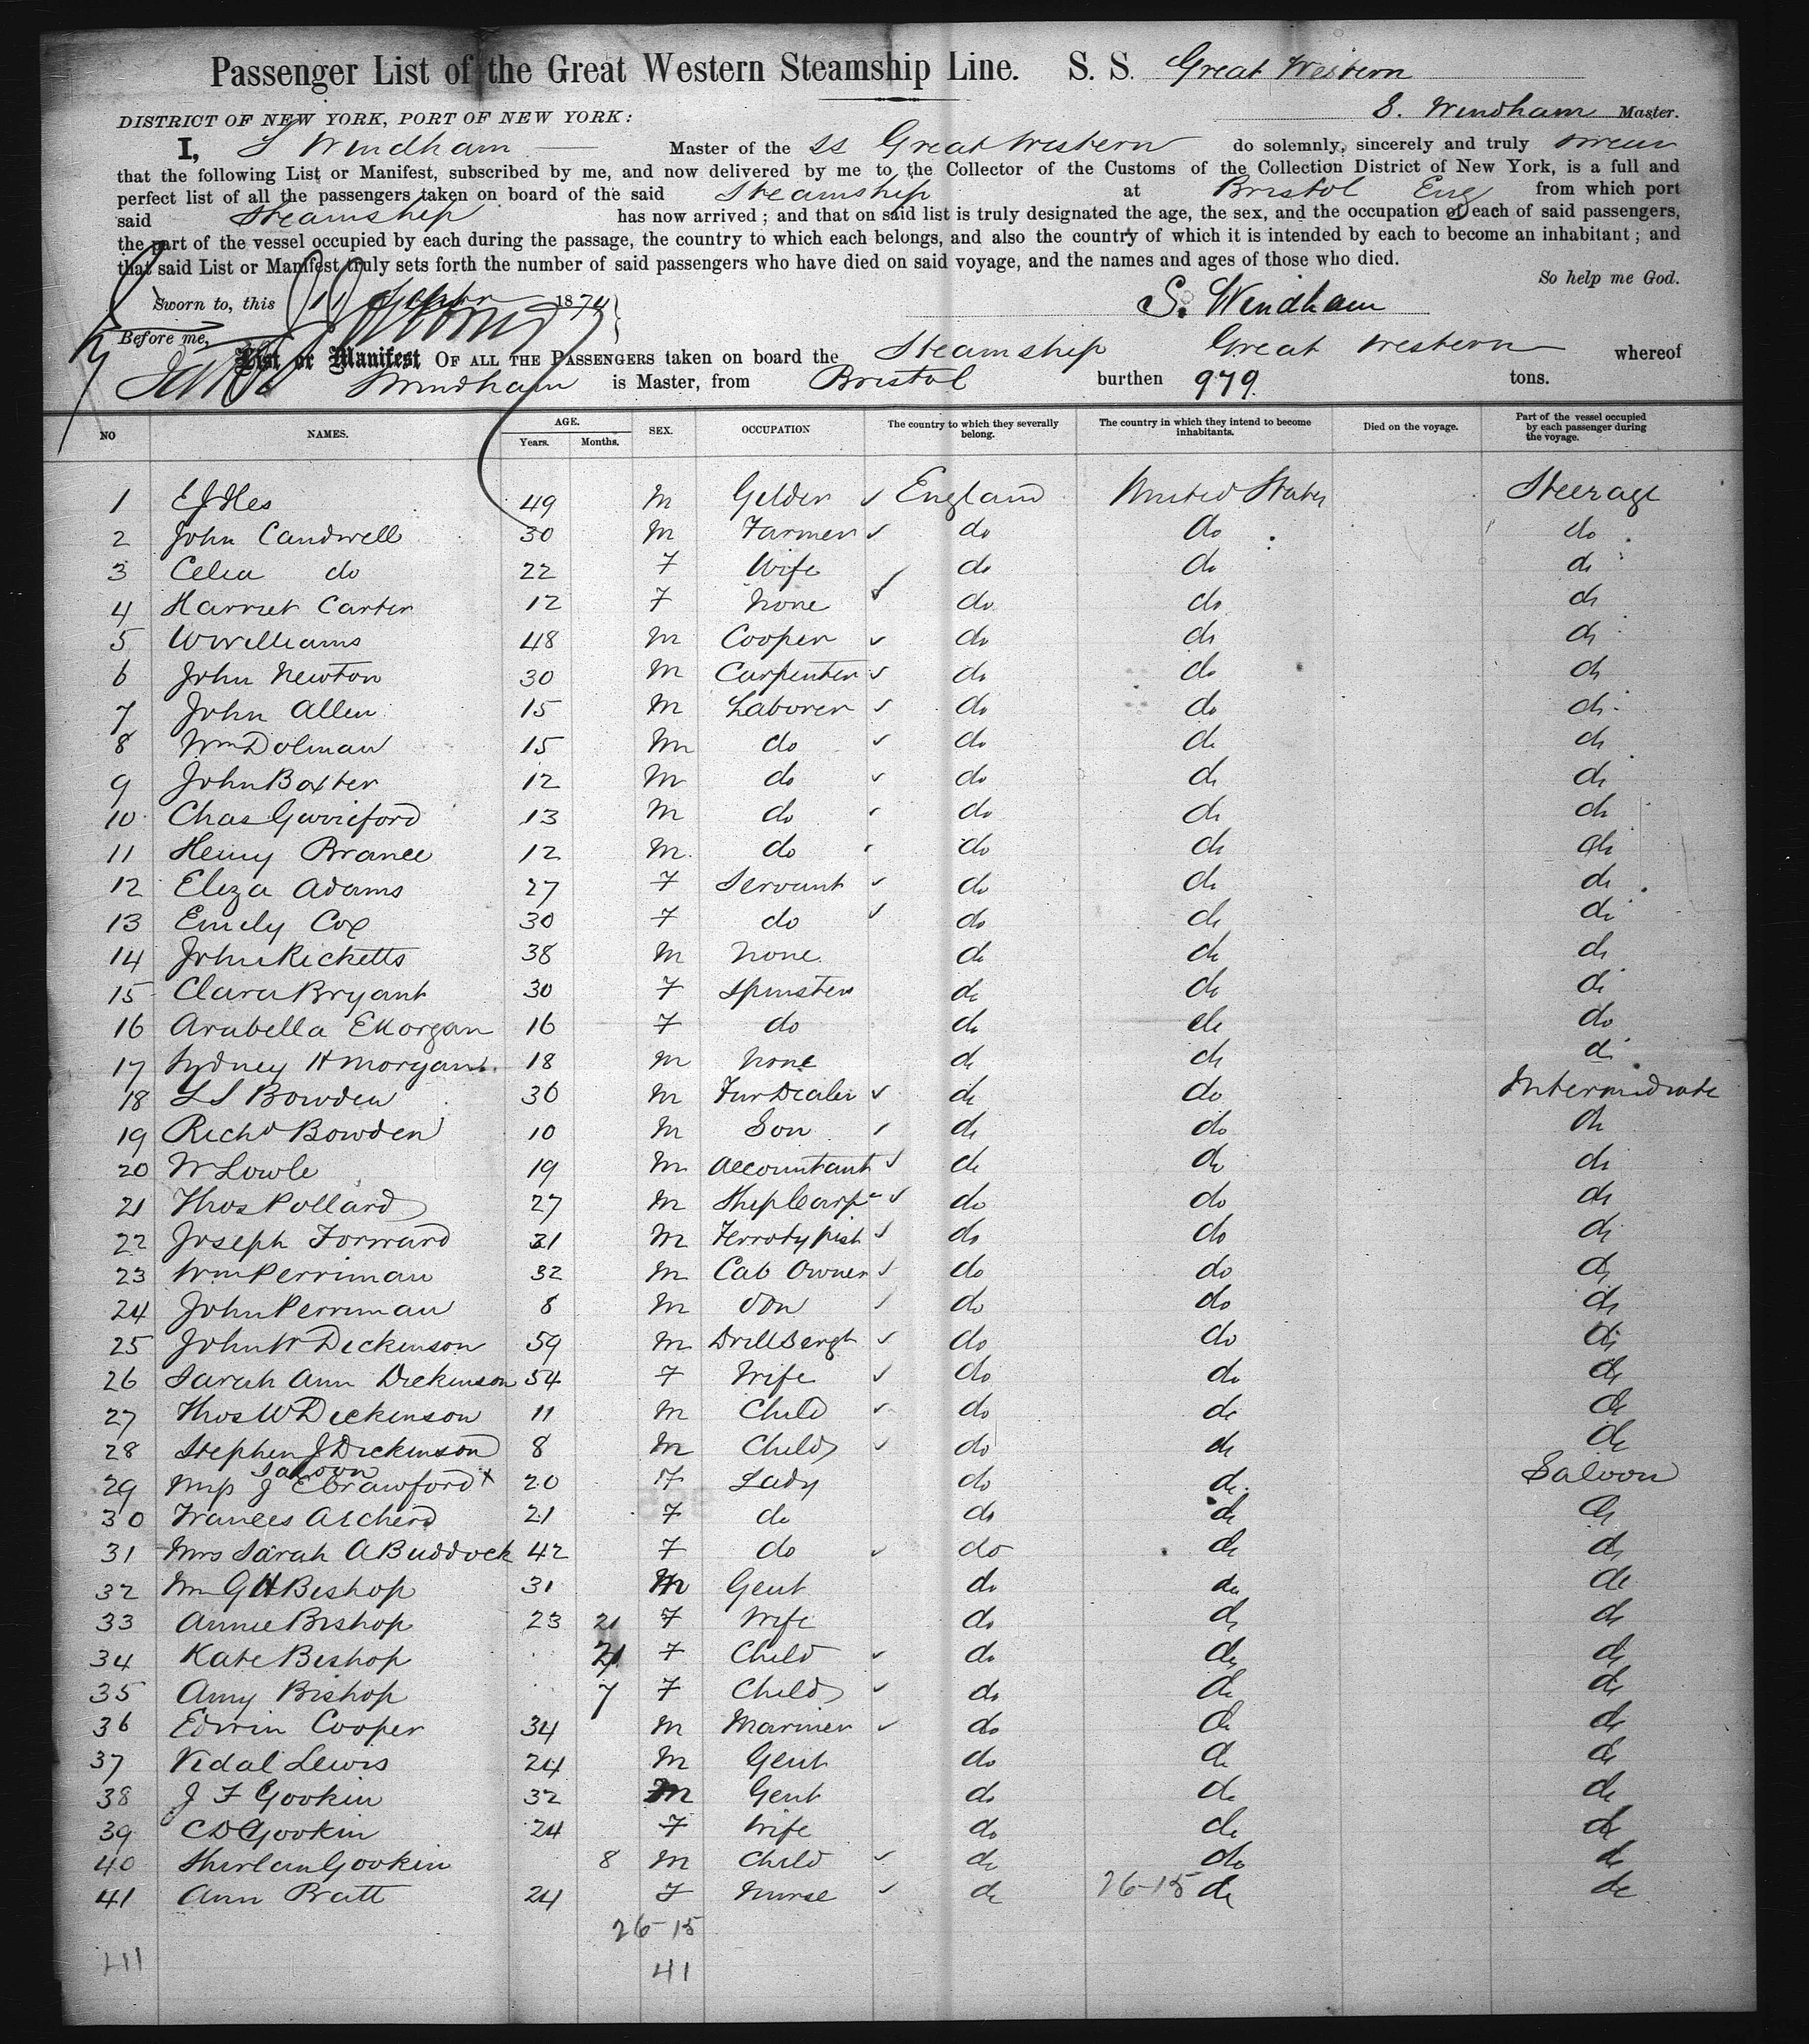 Passenger List of the Great Western Steamship Line. S. S. Great Western
DISTRICT OF NEW YORK, PORT OF NEW YORK: S. Windham Master.
I, S Windham Master of the SS Great Western do solemnly, sincerely and truly swear
that the following List or Manifest, subscribed by me, and now delivered by me to the Collector of the Customs of the Collection District of New York, is a full and
perfect list of all the passengers taken on board of the said Steamship at Bristol Eng from which port
said Steamship has now arrived; and that on said list is truly designated the age, the sex, and the occupation of each of said passengers,
the part of the vessel occupied by each during the passage, the country to which each belongs, and also the country of which it is intended by each to become an inhabitant; and
that said List or Manifest truly sets forth the number of said passengers who have died on said voyage, and the names and ages of those who died.
So help me God.
Sworn to, this 1874 S. Windham
Before me,
List or Manifest OF ALL THE PASSENGERS taken on board the Steamship Great Western whereof
S Windham is Master, from Bristol burthen 979 tons.
NO NAMES. AGE. Years. Months. SEX. OCCUPATION The country to which they severally belong. The country in which they intend to become inhabitants. Died on the voyage. Part of the vessel occupied by each passenger during the voyage.
1 E J Iles 49 M Gilder England United States Steerage
2 John Candwell 30 M Farmer do do do
3 Celia do 22 F Wife do do do
4 Harriet Carter 12 F None do do do
5 W Williams 48 M Cooper do do do
6 John Newton 30 M Carpenter do do do
7 John Allen 15 M Laborer do do do
8 Wm Dolman 15 M do do do do
9 John Baxter 12 M do do do do
10 Chas 13 M do do do do
11 Henry Brance 12 M do do do do
12 Eliza Adams 27 F Servant do do do
13 Emily Cox 30 F do do do do
14 John Ricketts 38 M None do do do
15 Clara Bryant 30 F Spinster do do do
16 Arabella E Morgan 16 F do do do do
17 Sydney H Morgan 18 M None do do do
18 L S Bowden 36 M Fur Dealer do do Intermediate
19 Richd Bowden 10 M Son do do do
20 W Lowle 19 M Accountant do do do
21 Thos Pollard 27 M Ship Carpr do do do
22 Joseph Forward 31 M Ferrotypist do do do
23 Wm Perriman 32 M Cab Owner do do do
24 John Perriman 8 M Son do do do
25 John W Dickinson 59 M Drill Sergt do do do
26 Sarah Ann Dickinson 54 F Wife do do do
27 Thos W Dickinson 11 M Child do do do
28 Stephen J Dickinson 8 M Child do do do
Saloon
29 Miss J E Crawford x 20 F Lady do do Saloon
30 Frances Archerd 21 F do do do do
31 Mrs Sarah A Buddock 42 F do do do do
32 Mr G H Bishop 31 M Gent do do do
33 Annie Bishop 23 21 F Wife do do do
34 Kate Bishop 21 F Child do do do
35 Amy Bishop 7 F Child do do do
36 Edwin Cooper 34 M Mariner do do do
37 Vidal Lewis 24 M Gent do do do
38 J F Gookin 32 M Gent do do do
39 C D Gookin 24 F Wife do do do
40 Gookin 8 M Child do do do
41 Ann Pratt 24 F Nurse do 26-15 do do
26-15
41